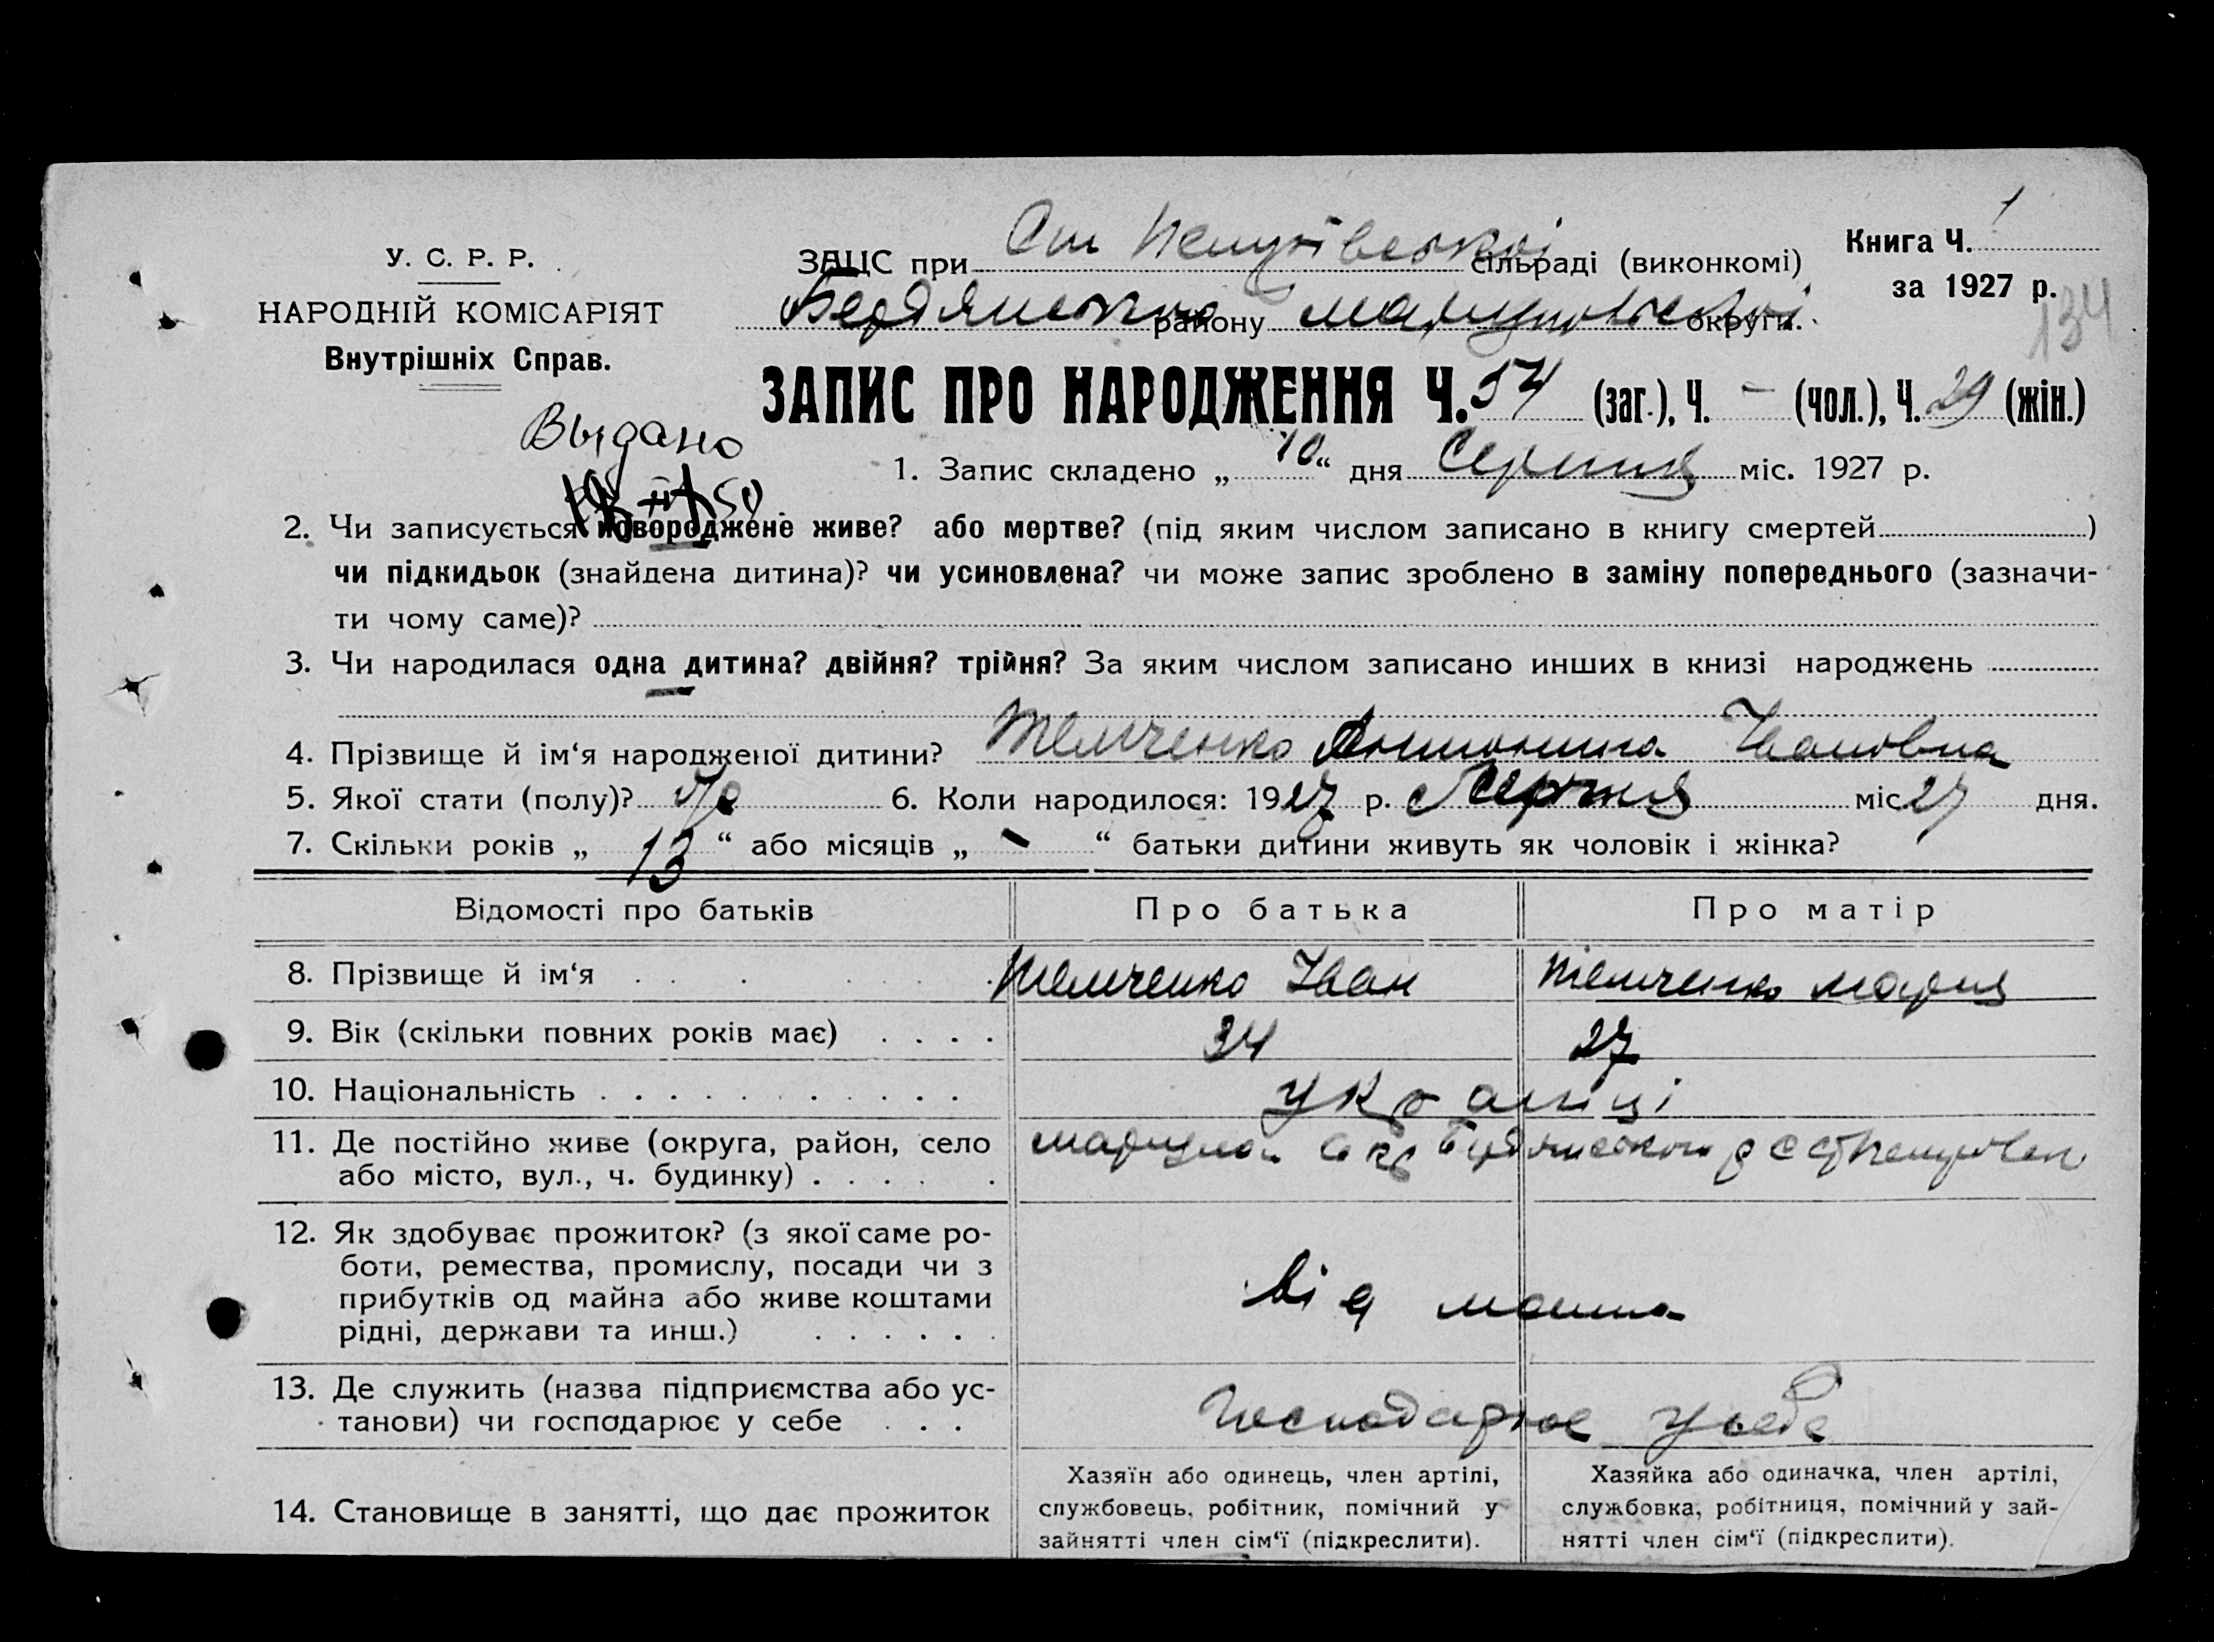 У. С. Р. Р.
НАРОДНІЙ КОМІСАРІЯТ
Внутрішніх Справ.
ЗАЦС при сільраді (виконкомі)
Бердянського району Маріупольської округи.
Книга Ч. 1
за 1927 р.
134
ЗАПИС ПРО НАРОДЖЕННЯ Ч. 54 (заг.), Ч. – (чол.), Ч. 29 (жін.)
Выдано
1. Запис складено „ 10 “ дня Серпня міс. 1927 р.
2. Чи записується новороджене живе? або мертве? (під яким числом записано в книгу смертей )
чи підкидьок (знайдена дитина)? чи усиновлена? чи може запис зроблено в заміну попереднього (зазначи-
ти чому саме)?
3. Чи народилася одна дитина? двійня? трійня? За яким числом записано инших в книзі народжень
4. Прізвище й ім‘я народженої дитини? Темченко Антонина Ивановна
5. Якої стати (полу)? 6. Коли народилося: 1927 р. Серпня міс. 27 дня.
7. Скільки років „ 13 “ або місяців „ - “ батьки дитини живуть як чоловік і жінка?
Відомості про батьків Про батька Про матір
8. Прізвище й ім‘я . . . . . Темченко Іван Темченко Мария
9. Вік (скільки повних років має) . . . . 34 27
10. Національність . . . . . . . . . . . українці
11. Де постійно живе (округа, район, село
або місто, вул., ч. будинку) . . . . .
12. Як здобуває прожиток? (з якої саме ро-
боти, ремества, промислу, посади чи з
прибутків од майна або живе коштами
рідні, держави та инш.) . . . . . .
від майна
13. Де служить (назва підприємства або ус-
танови) чи господарює у себе . . .
Господарює у себе
14. Становище в занятті, що дає прожиток
Хазяїн або одинець, член артілі,
службовець, робітник, помічний у
зайнятті член сім‘ї (підкреслити).
Хазяйка або одиначка, член артілі,
службовка, робітниця, помічний у зай-
нятті член сім‘ї (підкреслити).